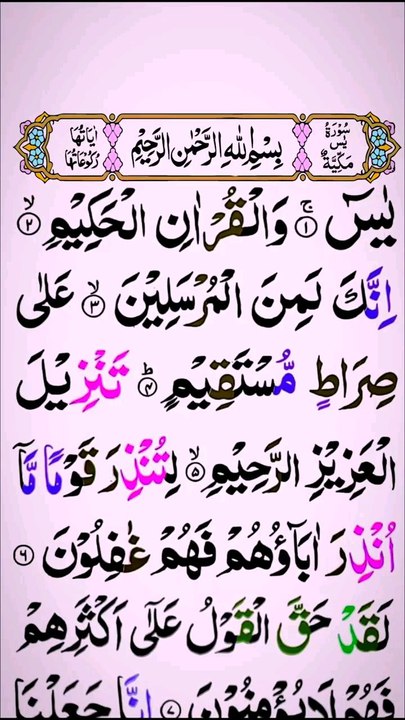 سُوْرَةُ يٰسٓ مَكِّيَّةٌ
بِسْمِ اللّٰهِ الرَّحْمٰنِ الرَّحِيْمِ
اٰيَاتُهَا رُكُوْعَاتُهَا
يٰسٓ ۚ﴿۱﴾ وَالْقُرْاٰنِ الْحَكِيْمِ ۙ﴿۲﴾
اِنَّكَ لَمِنَ الْمُرْسَلِيْنَ ۙ﴿۳﴾ عَلٰى
صِرَاطٍ مُّسْتَقِيْمٍ ؕ﴿۴﴾ تَنْزِيْلَ
الْعَزِيْزِ الرَّحِيْمِ ۙ﴿۵﴾ لِتُنْذِرَ قَوْمًا مَّاۤ
اُنْذِرَ اٰبَآؤُهُمْ فَهُمْ غٰفِلُوْنَ ﴿۶﴾
لَقَدْ حَقَّ الْقَوْلُ عَلٰٓى اَكْثَرِهِمْ
فَهُمْ لَا يُؤْمِنُوْنَ ﴿۷﴾ اِنَّا جَعَلْنَا